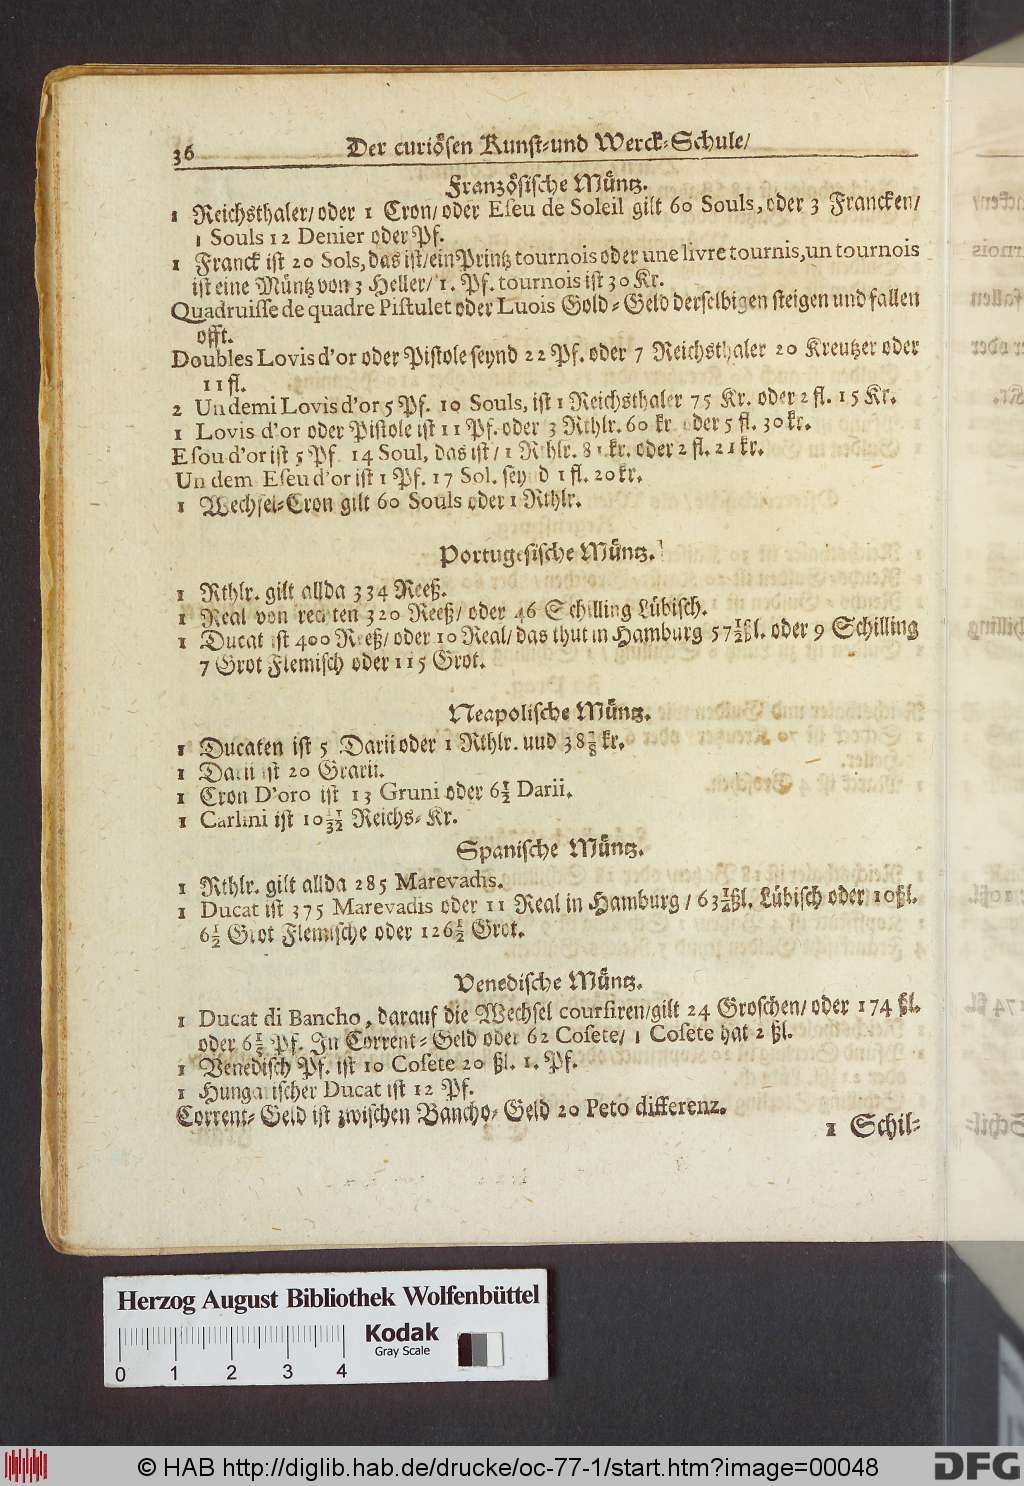 36 Der curiösen Kunst-und Werck-Schule/
Französische Müntz.
1 Reichsthaler/oder 1 Cron/oder Eseu de Soleil gilt 60 Souls, oder 3 Francken/
1 Souls 12 Denier oder Pf.
1 Franck ist 20 Sols, das ist/ein Printz tournois oder une livre tournis, un tournois
ist eine Müntz von 3 Heller/ 1. Pf. tournois ist 30 Kr.
Quadruisse de quadre Pistulet oder Luois Gold-Geld derselbigen steigen und fallen
offt.
Doubles Lovis d'or oder Pistole seynd 22 Pf. oder 7 Reichsthaler 20 Kreutzer oder
11 fl.
2 Un demi Lovis d'or 5 Pf. 10 Souls, ist 1 Reichsthaler 75 Kr. oder 2 fl. 15 Kr.
1 Lovis d'or oder Pistole ist 11 Pf. oder 3 Rthlr. 60 kr oder 5 fl. 30 kr.
Esou d'or ist 5 Pf. 14 Soul, das ist/ 1 Rthlr. 81 kr. oder 2 fl. 21 kr.
Un dem Eseu d'or ist 1 Pf. 17 Sol. seynd 1 fl. 20 kr.
1 Wechsel-Cron gilt 60 Souls oder 1 Rthlr.
Portugesische Müntz.
1 Rthlr. gilt allda 334 Reeß.
1 Real von recht en 320 Reeß/ oder 46 Schilling Lübisch.
1 Ducat ist 400 Reeß/ oder 10 Real/ das thut in Hamburg 57½ ßl. oder 9 Schilling
7 Grot Flemisch oder 115 Grot.
Neapolische Müntz.
1 Ducaten ist 5 Darii oder 1 Rthlr. uud 38⅞ kr.
1 Darii ist 20 Grarii.
1 Cron D'oro ist 13 Gruni oder 6½ Darii.
1 Carlini ist 10 Reichs-Kr.
Spanische Müntz.
1 Rthlr. gilt allda 285 Marevadis.
1 Ducat ist 375 Marevadis oder 11 Real in Hamburg / 63½ ßl. Lübisch oder 10 ßl.
6½ Grot Flemische oder 126½ Grot.
Venedische Müntz.
1 Ducat di Bancho, darauf die Wechsel coursiren/gilt 24 Groschen/ oder 174 ßl.
oder 6 Pf. In Corrent-Geld oder 62 Cosete/ 1 Cosete hat 2 ßl.
1 Venedisch Pf. ist 10 Cosete 20 ßl. 1. Pf.
1 Hungarischer Ducat ist 12 Pf.
Corrent-Geld ist zwischen Bancho-Geld 20 Peto differenz.
1 Schil-
Herzog August Bibliothek Wolfenbüttel
Kodak
Gray Scale
0 1 2 3 4
© HAB http://diglib.hab.de/drucke/oc-77-1/start.htm?image=00048
DFG